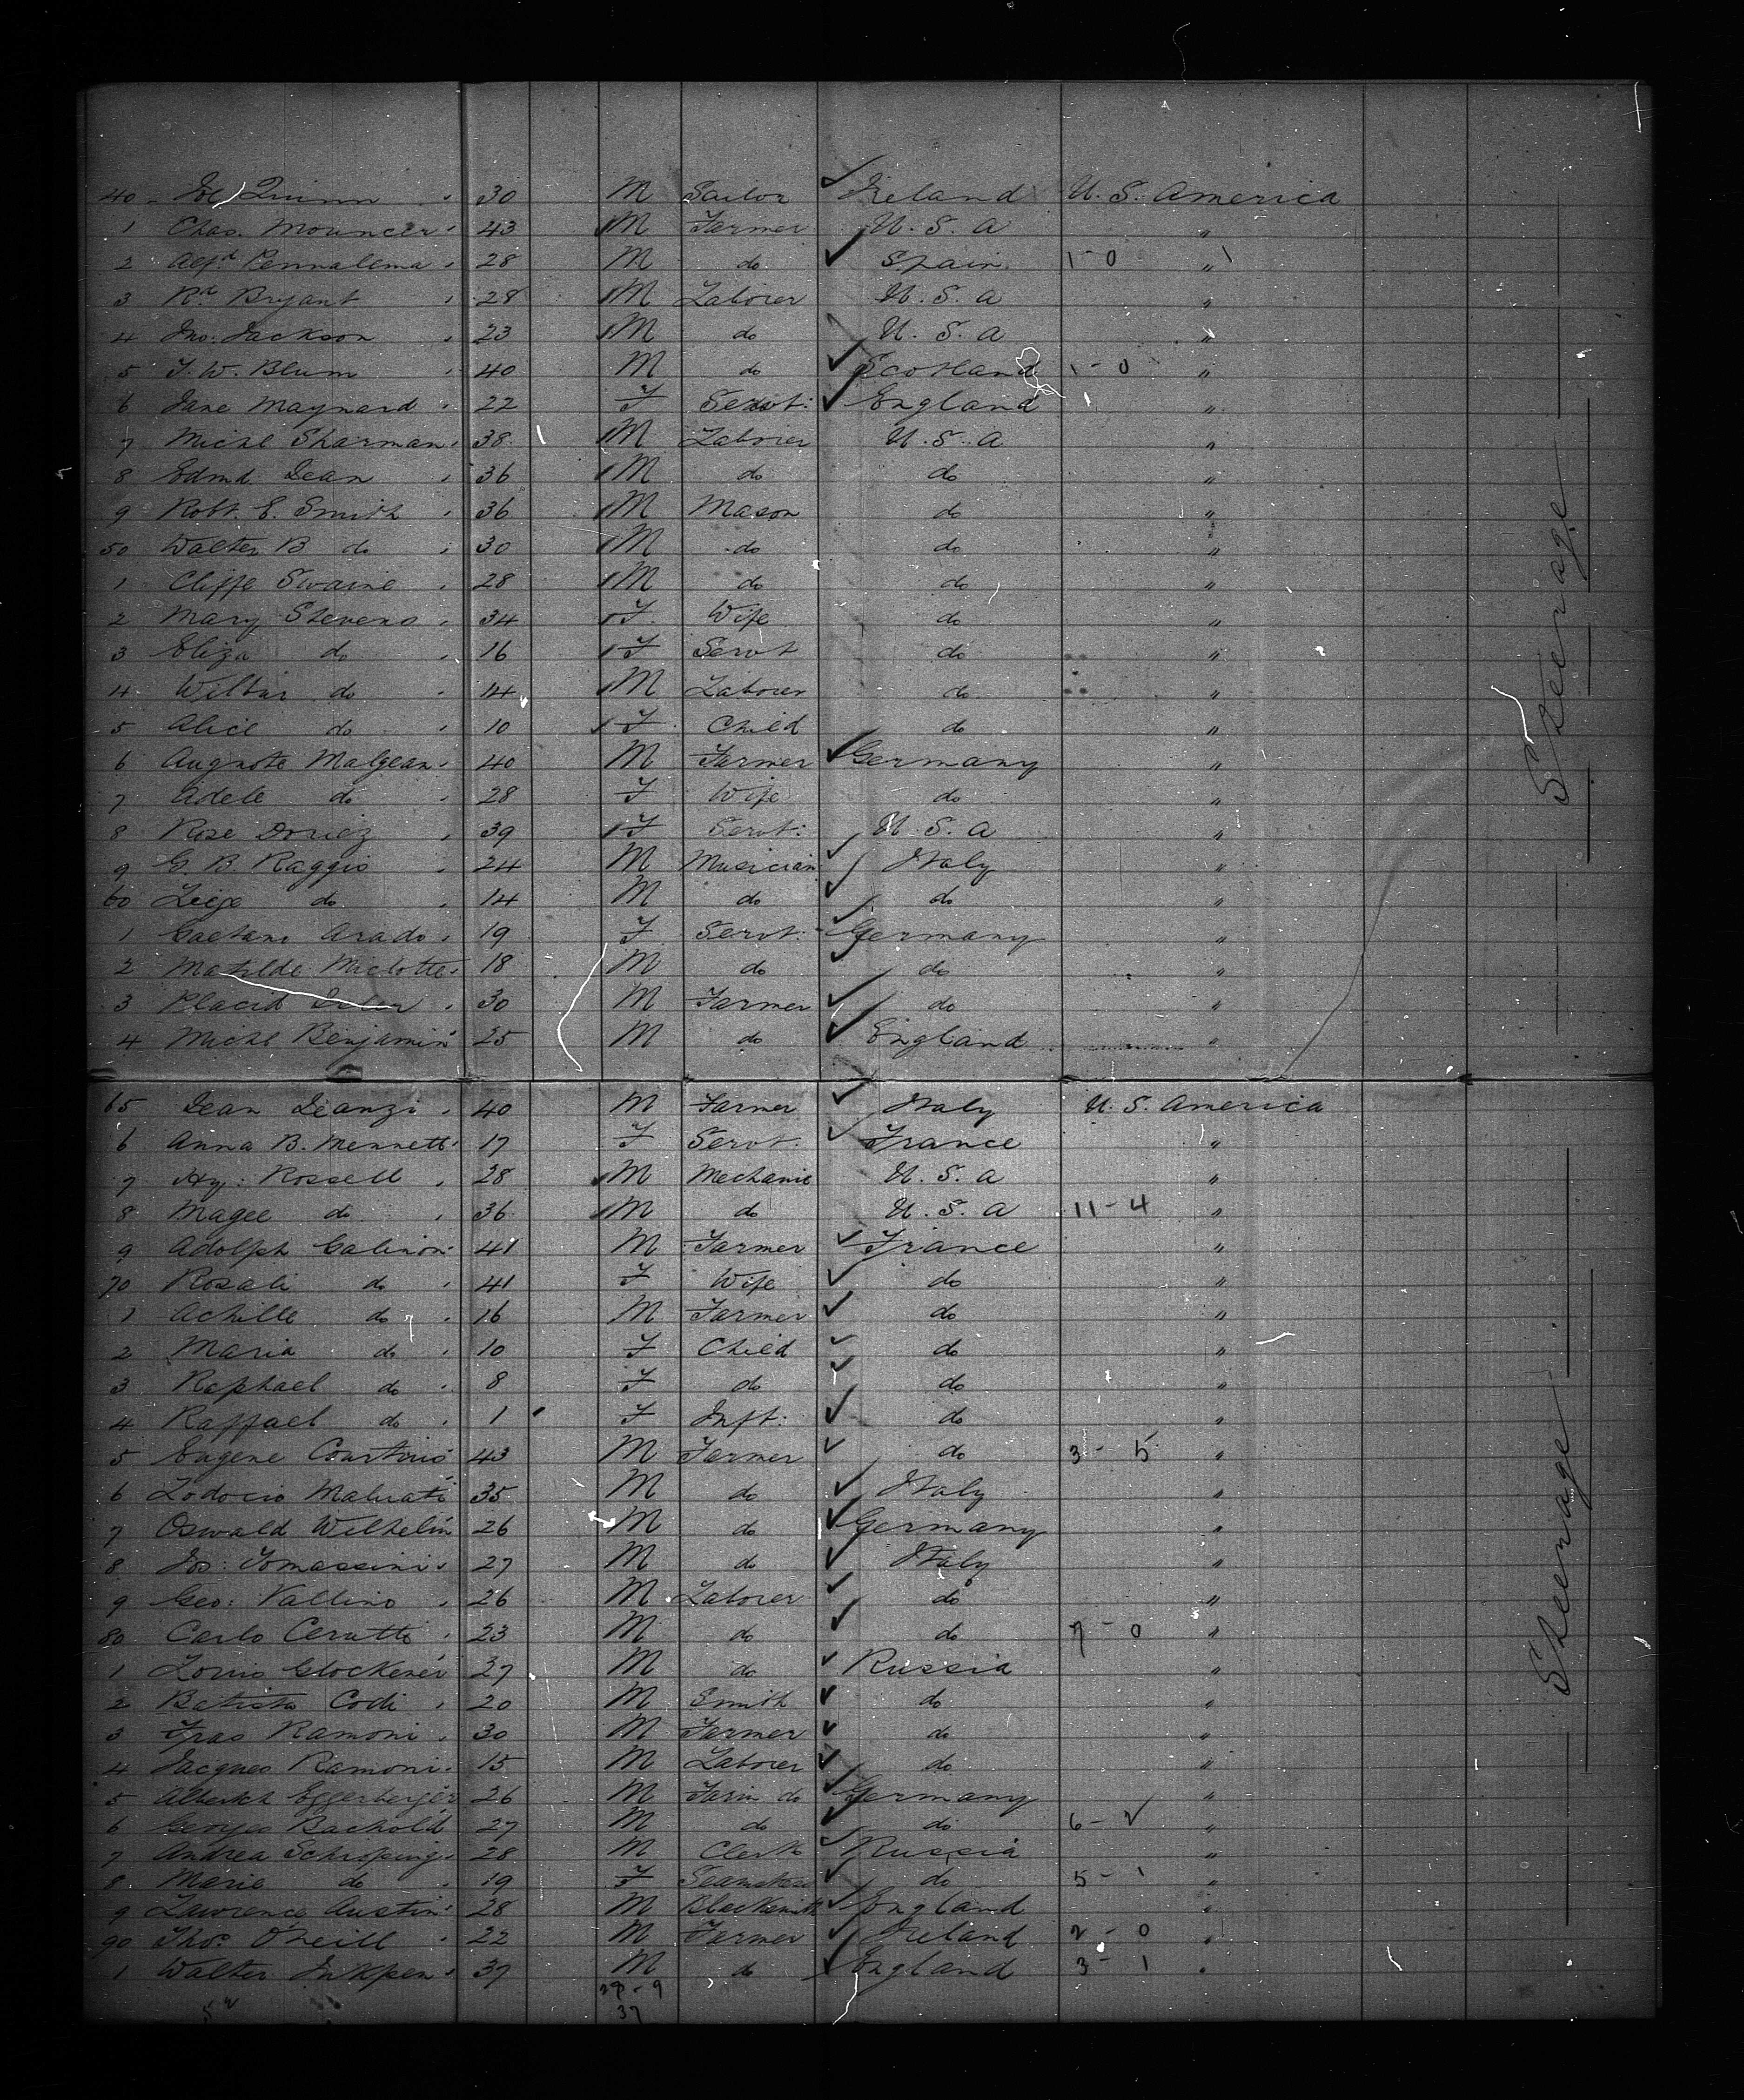 40 Quinn 30 M Sailor Ireland U. S. America
1 Chas. Mouncer 43 M Farmer U. S. A "
2 Alfd Pennalema 28 M do Spain 1-0 "
3 Rd Bryant 28 M Laborer U. S. A "
4 Jno. Jackson 23 M do U. S. A "
5 J. W. Blum 40 M do Scotland 1-0 "
6 Jane Maynard 22 F Servt: England "
7 Michl Sharman 38 M Laborer U. S. A "
8 Edmd. Dean 36 M do do "
9 Robt. E. Smith 36 M Mason do "
50 Walter B do 30 M do do "
1 Cliffe Swaine 28 M do do "
2 Mary Stevens 34 F Wife do "
3 Eliza do 16 F Servt do "
4 Wilbur do 14 M Laborer do "
5 Alice do 10 F Child do "
6 Auguste Malgean 40 M Farmer Germany "
7 Adele do 28 F Wife do "
8 Rose Doriez 39 F Servt: U. S. A "
9 G. B. Raggio 24 M Musician Italy "
60 do 14 M do do "
1 Gaetano Arado 19 F Servt: Germany "
2 Matilde Miclotte 18 M do do "
3 Placid 30 M Farmer do "
4 Michl Benjamin 25 M do England "
65 Dean Deanzi 40 M Farmer Italy U. S. America
6 Anna B. Mennett 17 F Servt. France "
7 Hy: Rossell 28 M Mechanic U. S. A "
8 Magee do 36 M do U. S. A 11-4 "
9 Adolph Calinon 41 M Farmer France "
70 Rosali do 41 F Wife do "
1 Achille do 16 M Farmer do "
2 Maria do 10 F Child do "
3 Raphael do 8 F do do "
4 Raffael do 1 F Inft: do "
5 Eugene 43 M Farmer do 3-5 "
6 Lodocio Maluati 35 M do Italy "
7 Oswald Wilhelm 26 M do Germany "
8 Jos: Tomassini 27 M do Italy "
9 Geo: Vallino 26 M Laborer do "
80 Carlo Cerutti 23 M do do 7-0 "
1 Louis Glockener 27 M do Russia "
2 Batista Codi 20 M Smith do "
3 Fras Ramoni 30 M Farmer do "
4 Jacques Ramoni 15 M Laborer do "
5 Albercht Eggerberger 26 M Farm do Germany "
6 Georges Bachold 27 M do do 6-2 "
7 Andrea Schroping 28 M Clerk Russia "
8 Marie do 19 F do 5-1 "
9 Lawrence Austin 28 M Blacksmith England "
90 Thos O'Neill 22 M Farmer Ireland 2-0 "
1 Walter Inkpen 37 M do England 3-1 "
29-9
37
Steerage
Steerage